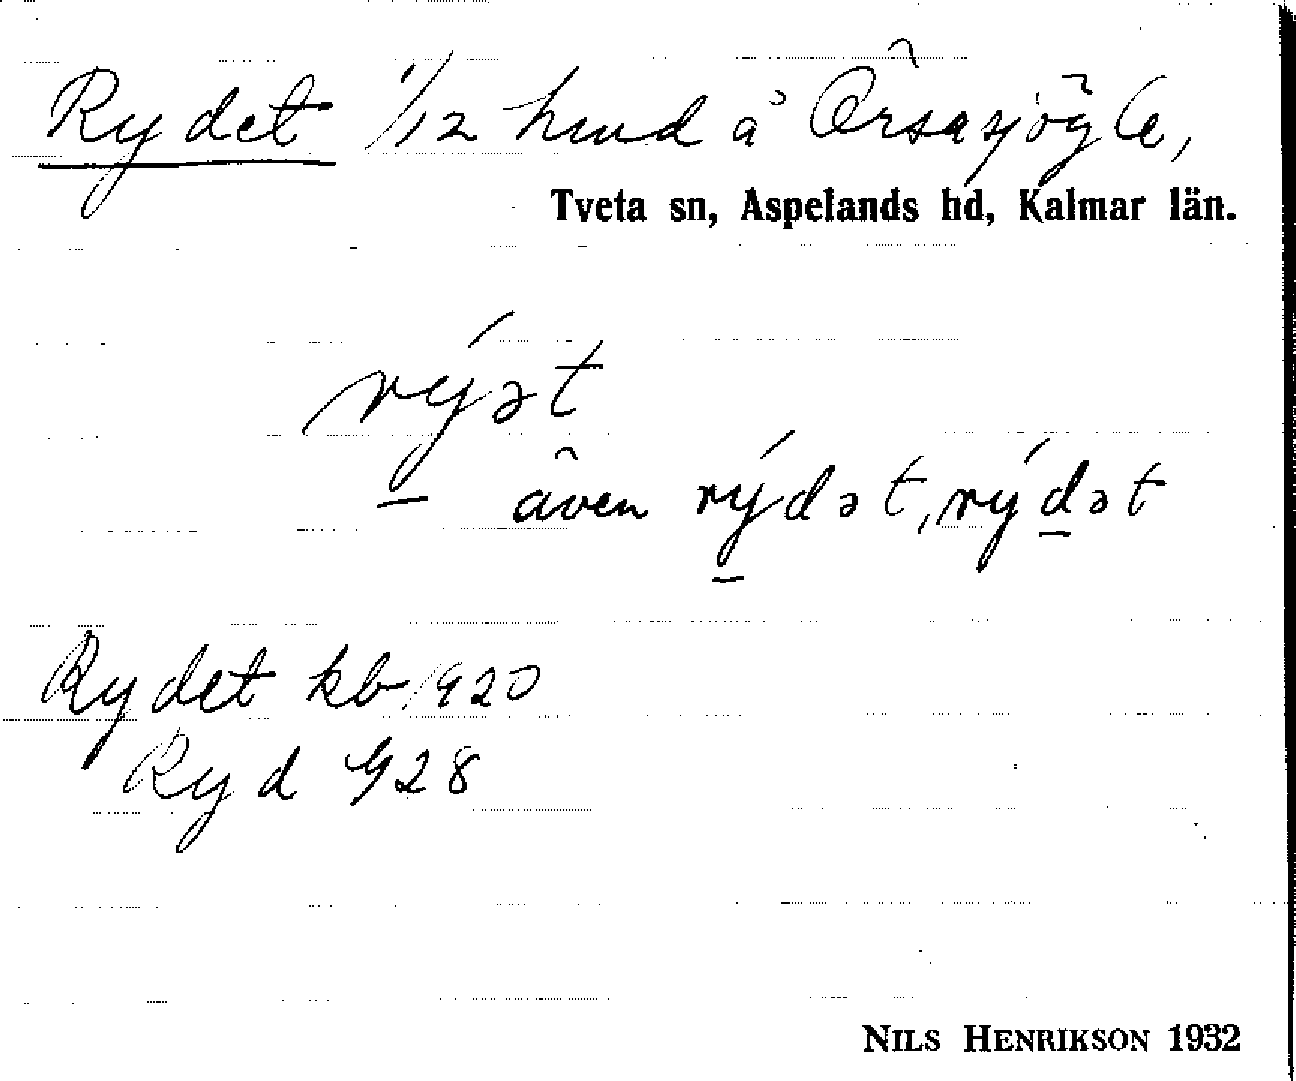 Rydet 1/12 hmd å Örsasjögle,
Tveta sn, Aspelands hd, Kalmar län.
rýət
även rýdət, rýdət
Rydet kb 1920
Ryd 928
NILS HENRIKSON 1932